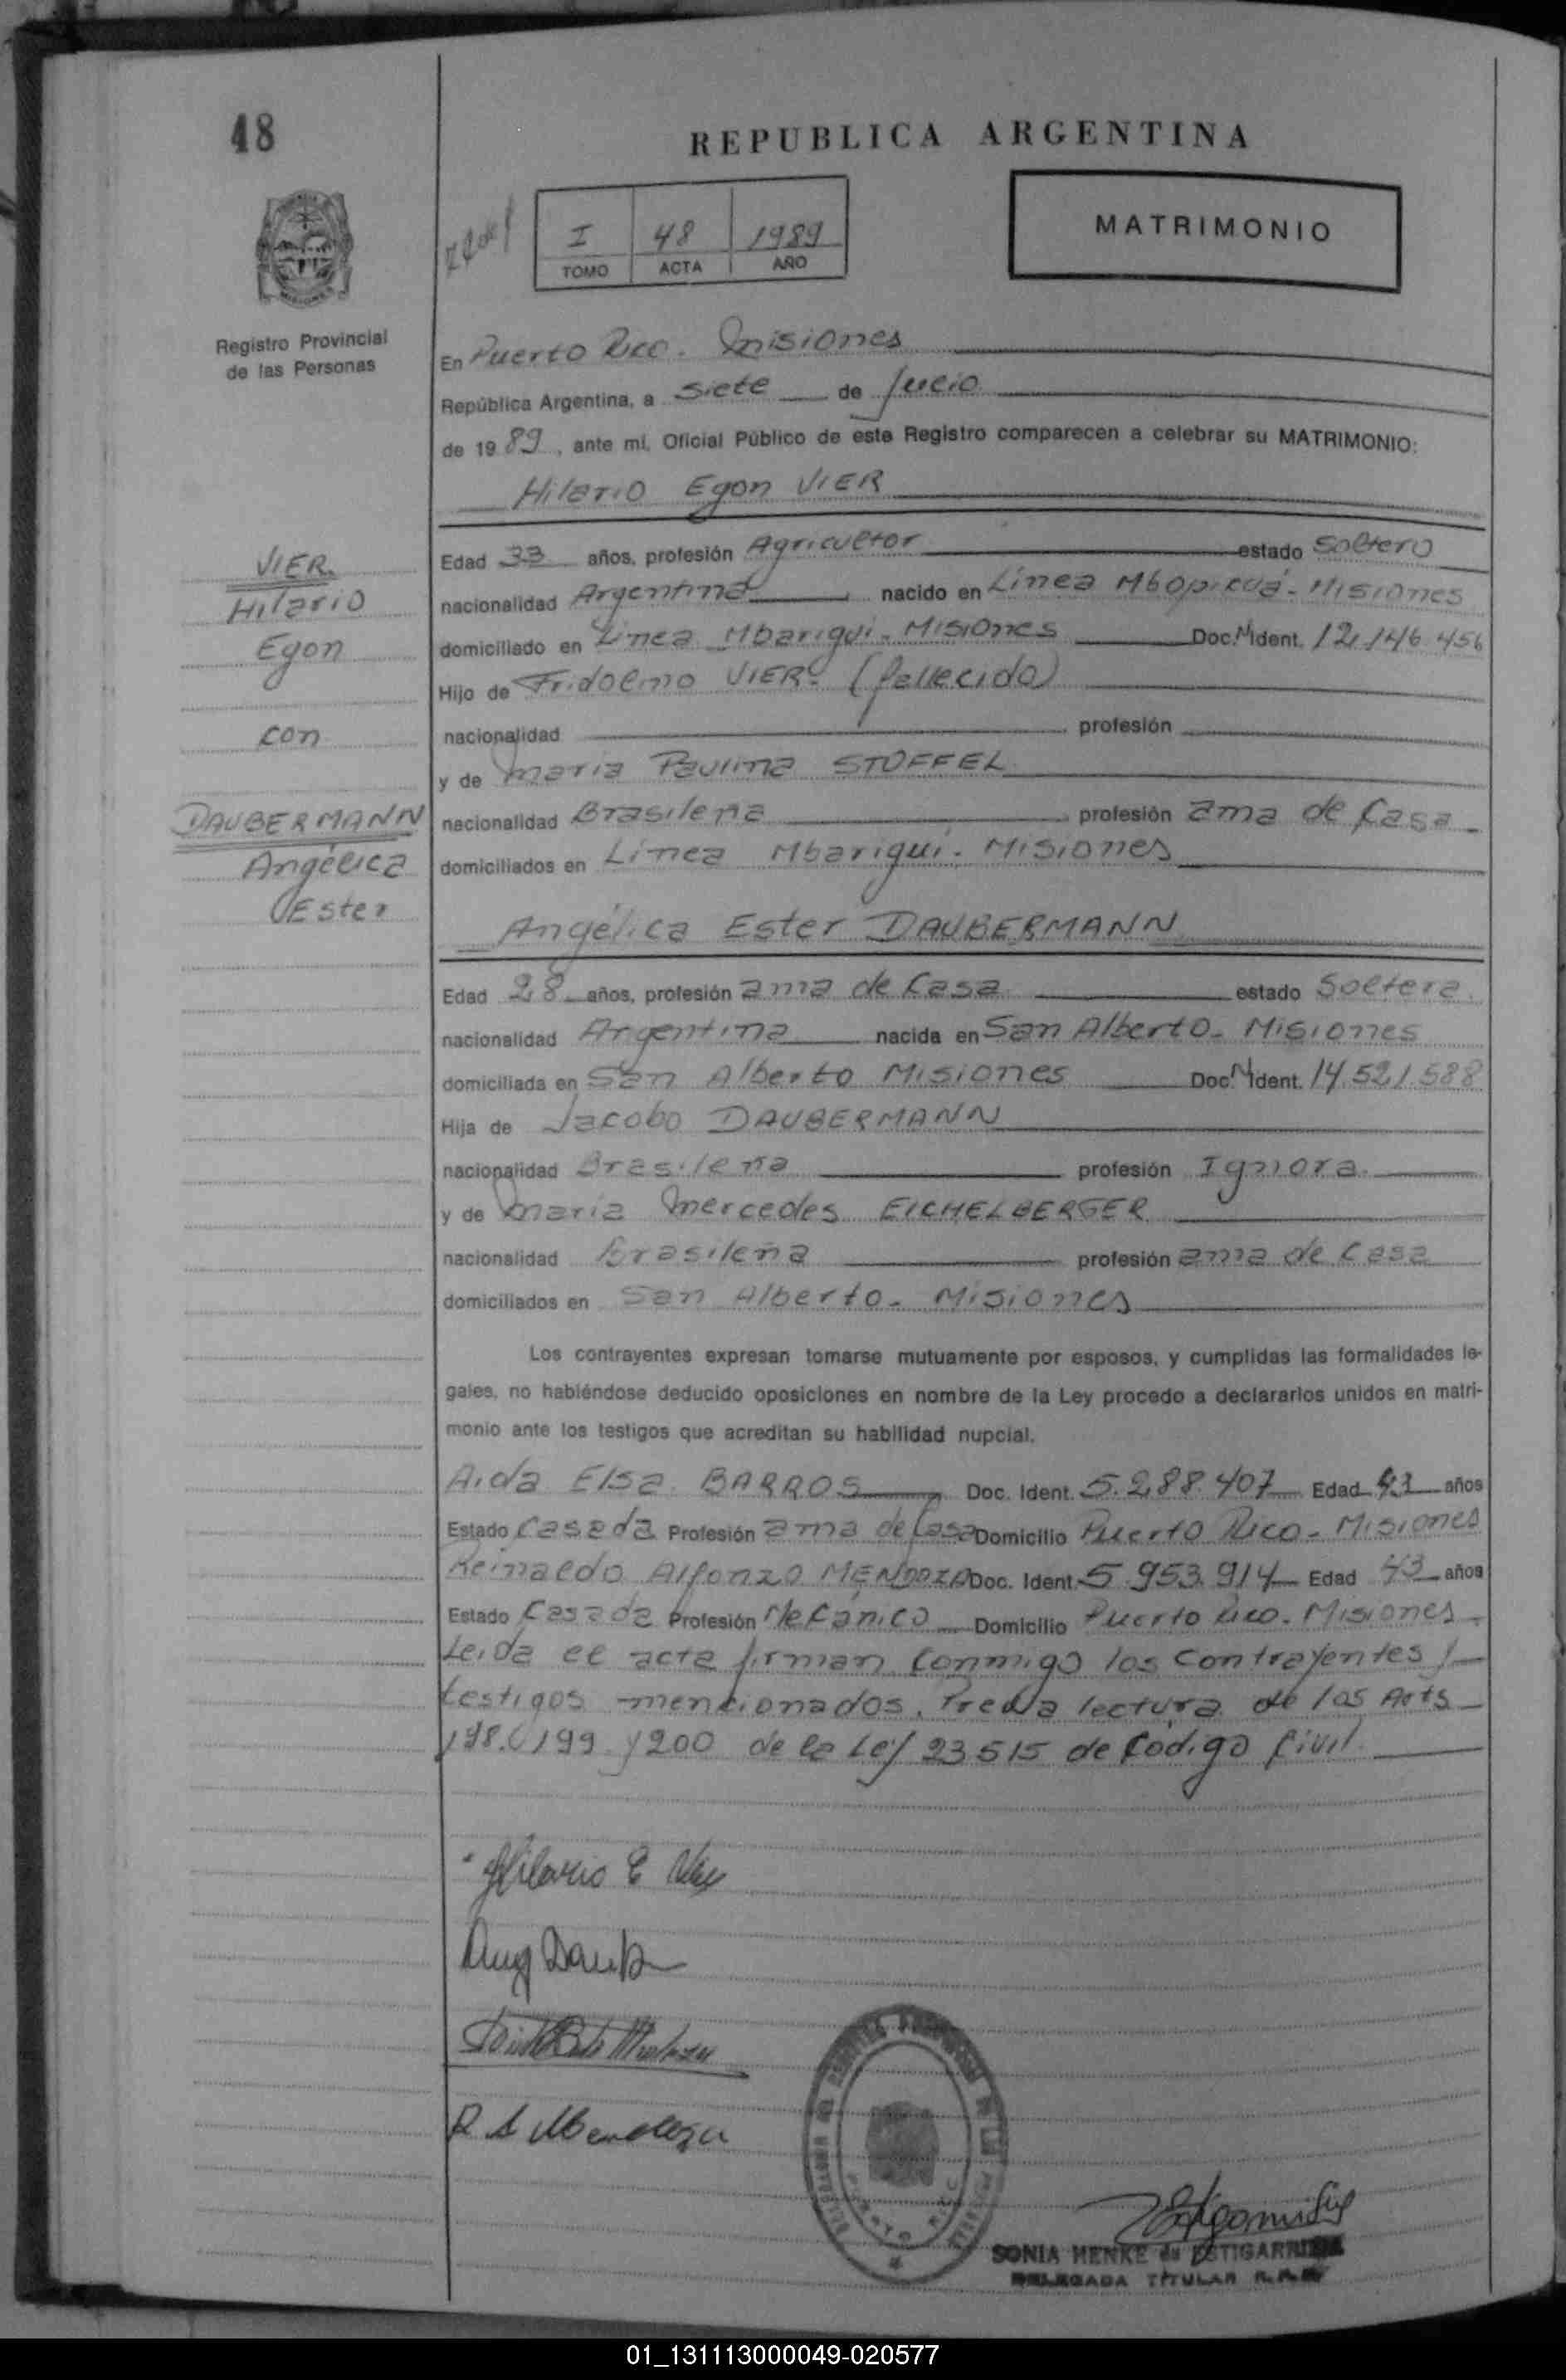 48
REPUBLICA ARGENTINA
I 48 1989
TOMO ACTA AÑO
MATRIMONIO
MISIONES
Registro Provincial
de las Personas
En Puerto Rico. Misiones
República Argentina, a siete de Julio
de 1989, ante mí, Oficial Público de este Registro comparecen a celebrar su MATRIMONIO:
Hilario Egon VIER
VIER
Hilario
Egon
con
DAUBERMANN
Angélica
Ester
Edad 33 años, profesión Agricultor estado Soltero
nacionalidad Argentina nacido en Línea Mbopicuá - Misiones
domiciliado en Línea Mbariguí - Misiones Doc. N. Ident. 12.146.456
Hijo de Fridolino VIER (fallecido)
nacionalidad profesión
y de María Paulina STOFFEL
nacionalidad Brasileña profesión ama de Casa
domiciliados en Línea Mbariguí - Misiones
Angélica Ester DAUBERMANN
Edad 28 años, profesión ama de Casa estado Soltera
nacionalidad Argentina nacida en San Alberto - Misiones
domiciliada en San Alberto Misiones Doc. N. Ident. 14.521.588
Hija de Jacobo DAUBERMANN
nacionalidad Brasileña profesión Ignora
y de María Mercedes EICHELBERGER
nacionalidad Brasileña profesión ama de casa
domiciliados en San Alberto - Misiones
Los contrayentes expresan tomarse mutuamente por esposos, y cumplidas las formalidades le-
gales, no habiéndose deducido oposiciones en nombre de la Ley procedo a declararlos unidos en matri-
monio ante los testigos que acreditan su habilidad nupcial.
Aida Elsa BARROS Doc. Ident. 5.288.407 Edad 43 años
Estado Casada Profesión ama de Casa Domicilio Puerto Rico - Misiones
Reinaldo Alfonzo MENDOZA Doc. Ident. 5.953.914 Edad 43 años
Estado Casado Profesión Mecánico Domicilio Puerto Rico - Misiones
Leída el acta firman conmigo los contrayentes y
testigos mencionados. Previa lectura de los Arts
198, 199 y 200 de la Ley 23515 de Código Civil
Hilario E Vier
Ang Daub
R A Mendoza
PUERTO RICO
SONIA HENKE de ESTIGARRIBIA
DELEGADA TITULAR R.P.P.
01_131113000049-020577